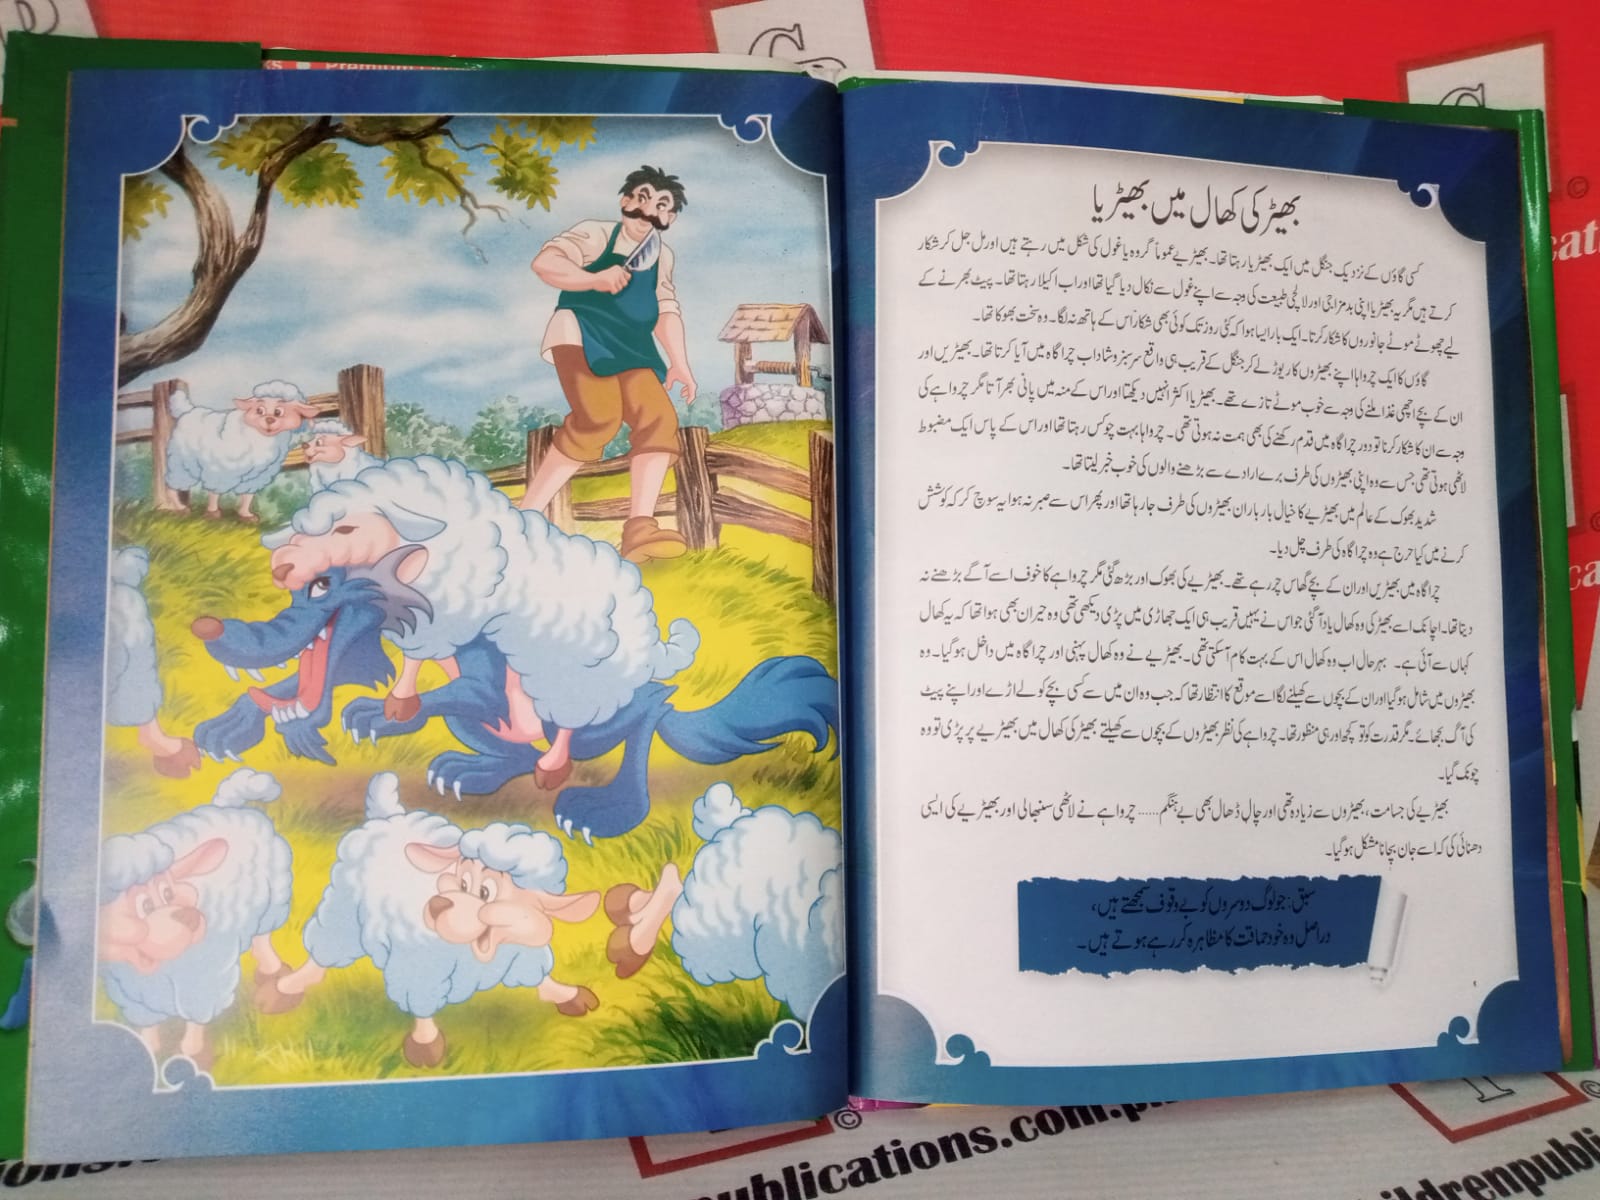 بھیڑ کی کھال میں بھیڑیا
کسی گاؤں کے نزدیک جنگل میں ایک بھیڑیا رہتا تھا۔ بھیڑیے عموماً گروہ یا غول کی شکل میں رہتے ہیں اور مل جل کر شکار
کرتے ہیں مگر یہ بھیڑیا اپنی بدمزاجی اور لالچی طبیعت کی وجہ سے اپنے غول سے نکال دیا گیا تھا اور اب اکیلا رہتا تھا۔ پیٹ بھرنے کے
لیے چھوٹے موٹے جانوروں کا شکار کرتا۔ ایک بار ایسا ہوا کہ کئی روز تک کوئی بھی شکار اُس کے ہاتھ نہ لگا۔ وہ سخت بھوکا تھا۔
گاؤں کا ایک چرواہا اپنے بھیڑوں کا ریوڑ لے کر جنگل کے قریب ہی واقع سرسبز و شاداب چراگاہ میں آیا کرتا تھا۔ بھیڑیں اور
ان کے بچے اچھی غذا ملنے کی وجہ سے خوب موٹے تازے تھے۔ بھیڑیا اکثر انہیں دیکھتا اور اس کے منہ میں پانی بھر آتا مگر چرواہے کی
وجہ سے ان کا شکار کرنا تو دور چراگاہ میں قدم رکھنے کی بھی ہمت نہ ہوتی تھی۔ چرواہا بہت چوکس رہتا تھا اور اس کے پاس ایک مضبوط
لاٹھی ہوتی تھی جس سے وہ اپنی بھیڑوں کی طرف برے ارادے سے بڑھنے والوں کی خوب خبر لیتا تھا۔
شدید بھوک کے عالم میں بھیڑیے کا خیال بار بار ان بھیڑوں کی طرف جا رہا تھا اور پھر اس سے صبر نہ ہوا یہ سوچ کر کہ کوشش
کرنے میں کیا حرج ہے وہ چراگاہ کی طرف چل دیا۔
چراگاہ میں بھیڑیں اور ان کے بچے گھاس چر رہے تھے۔ بھیڑیے کی بھوک اور بڑھ گئی مگر چرواہے کا خوف اسے آگے بڑھنے نہ
دیتا تھا۔ اچانک اسے بھیڑ کی وہ کھال یاد آ گئی جو اس نے یہیں قریب ہی ایک جھاڑی میں پڑی دیکھی تھی وہ حیران بھی ہوا تھا کہ یہ کھال
کہاں سے آئی ہے۔ بہر حال اب وہ کھال اس کے بہت کام آ سکتی تھی۔ بھیڑیے نے وہ کھال پہنی اور چراگاہ میں داخل ہو گیا۔ وہ
بھیڑوں میں شامل ہو گیا اور ان کے بچوں سے کھیلنے لگا اسے موقع کا انتظار تھا کہ جب وہ ان میں سے کسی بچے کو لے اڑے اور اپنے پیٹ
کی آگ بجھائے۔ مگر قدرت کو تو کچھ اور ہی منظور تھا۔ چرواہے کی نظر بھیڑوں کے بچوں سے کھیلتے بھیڑ کی کھال میں بھیڑیے پر پڑی تو وہ
چونک گیا۔
بھیڑیے کی جسامت، بھیڑوں سے زیادہ تھی اور چال ڈھال بھی بے ہنگم...... چرواہے نے لاٹھی سنبھالی اور بھیڑیے کی ایسی
دھنائی کی کہ اسے جان بچانا مشکل ہو گیا۔
سبق: جو لوگ دوسروں کو بے وقوف سمجھتے ہیں،
دراصل وہ خود حماقت کا مظاہرہ کر رہے ہوتے ہیں۔
publications.com.p